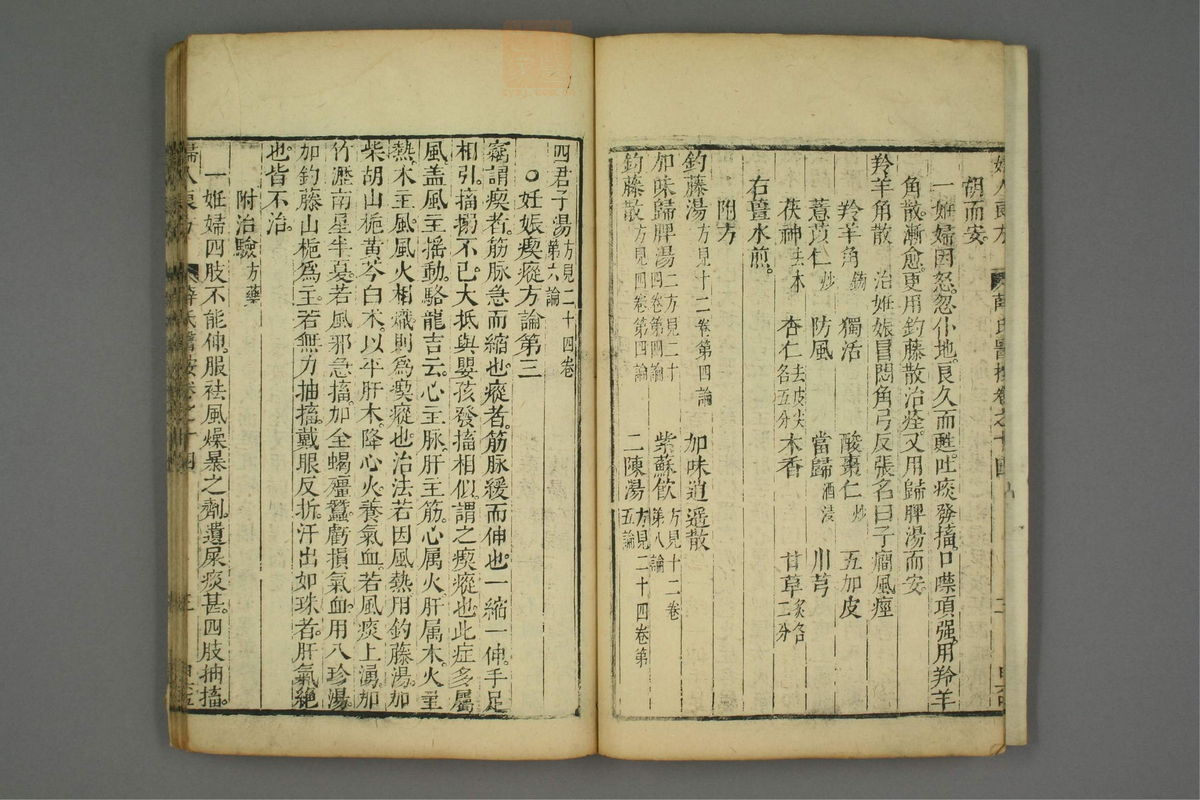 婦人良方 薛氏醫按卷之十四 二
胡而安。
一妊婦因怒忽仆地。良久而甦。吐痰發搐。口噤項强。用羚羊
角散。漸愈。更用鈎藤散治痊。又用歸脾湯而安。
羚羊角散 治妊娠冒悶角弓反張名曰子癇風痙
羚羊角鎊 獨活 酸棗仁炒 五加皮
薏苡仁炒 防風 當歸酒浸 川芎
茯神去木 杏仁去皮尖各五分 木香 甘草炙各二分
右薑水煎。
附方
鈎藤湯方見十二卷第四論 加味逍遥散
加味歸脾湯二方見二十四卷第四論 紫蘇飲方見十二卷第八論
鈎藤散方見四卷第四論 二陳湯方見二十四卷第五論
四君子湯方見二十四卷第六論
○妊娠瘈瘲方論第三
竊謂瘈者。筋脉急而縮也。瘲者。筋脉緩而伸也。一縮一伸。手足
相引。搐搦不已。大抵與嬰孩發搐相似。謂之瘈瘲也。此症多屬
風。盖風主搖動。駱龍吉云。心主脉。肝主筋。心属火。肝属木。火主
熱。木主風。風火相熾。則爲瘈瘲也。治法若因風熱。用鈎藤湯。加
柴胡山梔黄芩白术。以平肝木。降心火。養氣血。若風痰上湧。加
竹瀝南星半夏。若風邪急搐。加全蝎殭蠶。虧損氣血。用八珍湯。
加鈎藤山梔爲主。若無力抽搐。戴眼反折。汗出如珠者。肝氣絶
也。皆不治。
附治驗方藥
一妊婦四肢不能伸。服祛風燥暴之劑。遺屎痰甚。四肢抽搐。
婦人良方 薛氏醫按卷之十四 三